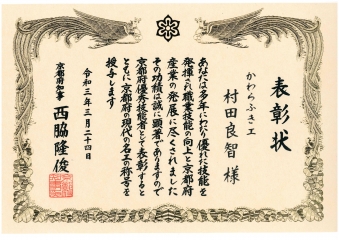 表彰状
かわらぶき工
村田良智 様
あなたは多年にわたり優れた技能を
発揮され職業技能の向上と京都府
産業の発展に尽くされました
その功績は誠に顕著でありますので
京都府優秀技能者として表彰すると
ともに京都府の現代の名工の称号を
授与します
令和三年三月二十四日
京都府知事 西脇隆俊